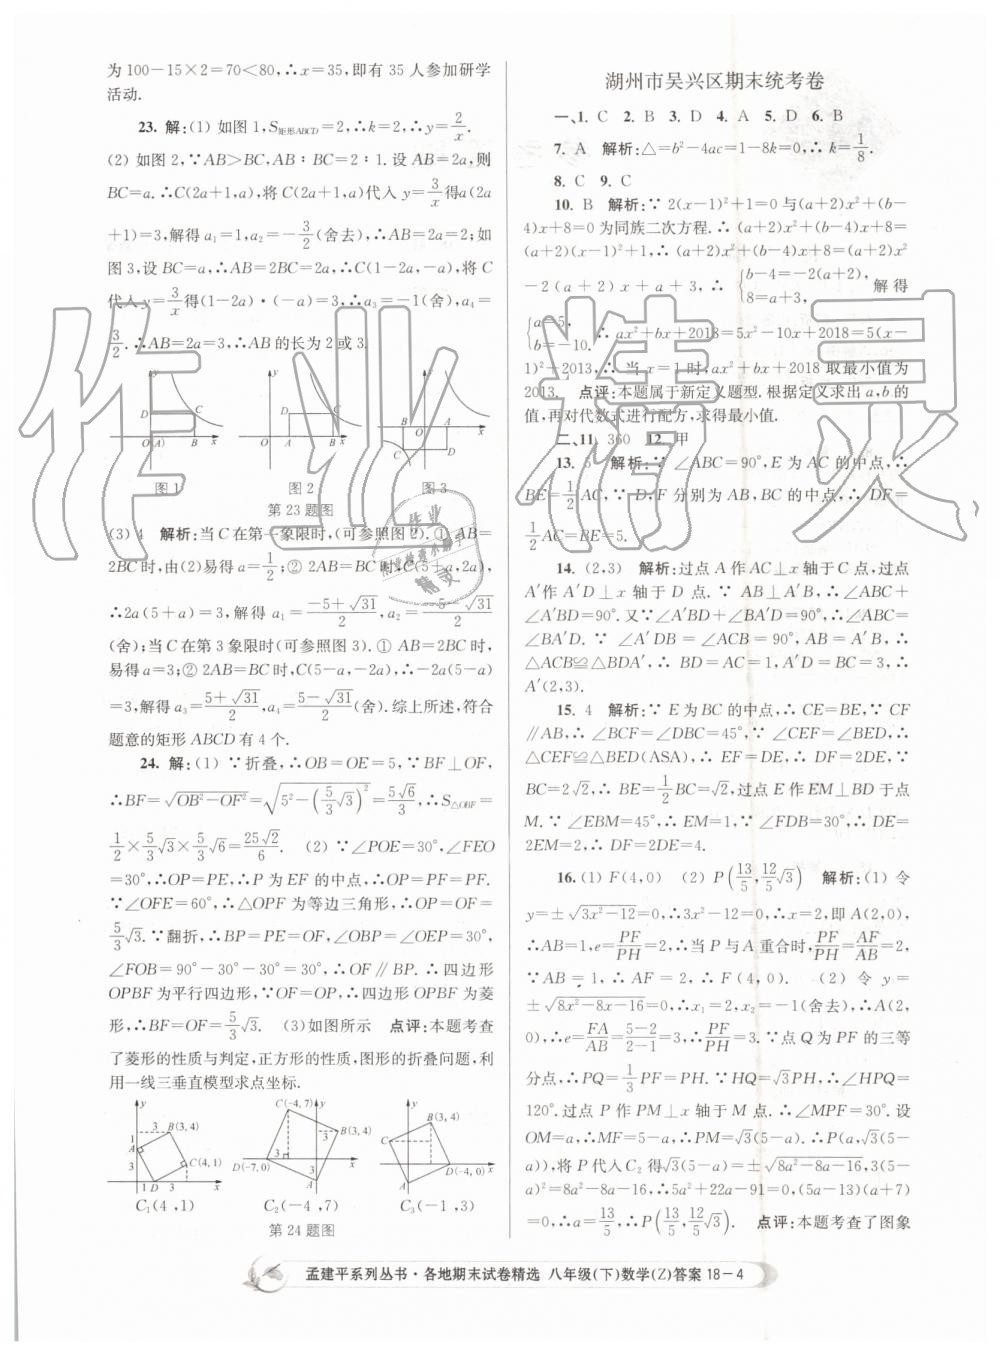 为100-15×2=70<80,∴x=35,即有 35 人参加研学
活动.
23. 解:(1) 如图 1,S矩形ABCD=2,∴k=2,∴y=2/x.
(2) 如图 2,∵AB>BC,AB∶BC=2∶1.设 AB=2a,则
BC=a.∴C(2a+1,a),将C(2a+1,a)代入 y=3/x得a(2a
+1)=3,解得 a₁=1,a₂=-3/2(舍去),∴AB=2a=2;如
图 3,设 BC=a,∴AB=2BC=2a,∴C(1-2a,-a),将 C
代入y=3/x得(1-2a)·(-a)=3,∴a₃=-1(舍),a₄=
3/2.∴AB=2a=3,∴AB 的长为 2 或 3.
y
D
C
O
(A)
B
x
图 1
y
D
C
O
A
B
x
图 2
y
B
A
O
C
D
x
图 3
第 23 题图
(3) 4 解析:当 C 在第一象限时,(可参照图 2).① AB=
2BC 时,由(2)易得 a=1;② 2AB=BC 时,C(5+a,2a),
∴2a(5+a)=3,解得 a₁=(-5+√31)/2,a₂=(-5-√31)/2
(舍);当 C 在第 3 象限时(可参照图 3).① AB=2BC 时,
易得 a=3;② 2AB=BC 时,C(5-a,-2a),∴-2a(5-a)
=3,解得 a₃=(5+√31)/2,a₄=(5-√31)/2(舍).综上所述,符合
题意的矩形 ABCD 有 4 个.
24. 解:(1) ∵折叠,∴OB=OE=5,∵BF⊥OF,
∴BF=√(OB²-OF²)=√(5²-(5/3√3)²)=5√6/3,∴S△OBF=
1/2×5/3√3×5/3√6=25√2/6. (2) ∵∠POE=30°,∠FEO
=30°,∴OP=PE,∴P 为 EF 的中点,∴OP=PF=PF.
∵∠OFE=60°,∴△OPF 为等边三角形,∴OP=OF=
5/3√3.∵翻折,∴BP=PE=OF,∠OBP=∠OEP=30°,
∠FOB=90°-30°-30°=30°,∴OF∥BP.∴四边形
OPBF 为平行四边形,∵OF=OP,∴四边形 OPBF 为菱
形,∴BF=OF=5/3√3. (3)如图所示 点评:本题考查
了菱形的性质与判定,正方形的性质,图形的折叠问题,利
用一线三垂直模型求点坐标.
y
3
B(3,4)
1
A
3
C(4,1)
O
1
D
3
x
C₁(4,1)
C(-4,7)
y
3
B(3,4)
3
D(-7,0)
A
x
C₂(-4,7)
y
B(3,4)
C
D(-4,0)
O
A
x
C₃(-1,3)
第 24 题图
湖州市吴兴区期末统考卷
一、1. C 2. B 3. D 4. A 5. D 6. B
7. A 解析:△=b²-4ac=1-8k=0,∴k=1/8.
8. C 9. C
10. B 解析:∵2(x-1)²+1=0 与(a+2)x²+(b-
4)x+8=0 为同族二次方程.∴(a+2)x²+(b-4)x+8=
(a+2)(x-1)²+1,∴(a+2)x²+(b-4)x+8=(a+2)x²
-2(a+2)x+a+3,∴{b-4=-2(a+2), 8=a+3, 解得
{a=5, b=-10. ∴ax²+bx+2018=5x²-10x+2018=5(x-
1)²+2013,∴当 x=1 时,ax²+bx+2018 取最小值为
2013. 点评:本题属于新定义题型.根据定义求出 a,b 的
值,再对代数式进行配方,求得最小值.
二、11. 360 12. 甲
13. 5 解析:∵∠ABC=90°,E 为 AC 的中点,∴
BE=1/2AC,∵D,F 分别为 AB,BC 的中点,∴DF=
1/2AC=BE=5.
14. (2,3) 解析:过点 A 作 AC⊥x 轴于 C 点,过点
A′作 A′D⊥x 轴于 D 点.∵AB⊥A′B,∴∠ABC+
∠A′BD=90°.又∵∠A′BD+∠BA′D=90°,∴∠ABC=
∠BA′D.∵∠A′DB=∠ACB=90°,AB=A′B,∴
△ACB≌△BDA′,∴BD=AC=1,A′D=BC=3,∴
A′(2,3).
15. 4 解析:∵E 为 BC 的中点,∴CE=BE,∵CF
∥AB,∴∠BCF=∠DBC=45°,∵∠CEF=∠BED,∴
△CEF≌△BED(ASA),∴EF=DE,∴DF=2DE,∵
BC=2√2,∴BE=1/2BC=√2,过点 E 作 EM⊥BD 于点
M.∵∠EBM=45°,∴EM=1,∵∠FDB=30°,∴DE=
2EM=2,∴DF=2DE=4.
16. (1) F(4,0) (2) P(13/5,12/5√3) 解析:(1) 令
y=±√(3x²-12)=0,∴3x²-12=0,∴x=2,即 A(2,0),
∴AB=1,e=PF/PH=2,∴当 P 与 A 重合时,PF/PH=AF/AB=2,
∵AB=1,∴AF=2,∴F(4,0). (2) 令 y=
±√(8x²-8x-16)=0,∴x₁=2,x₂=-1(舍去),∴A(2,
0),∴e=FA/AB=(5-2)/(2-1)=3,∴PF/PH=3.∵点 Q 为 PF 的三等
分点,∴PQ=1/3PF=PH.∵HQ=√3PH,∴∠HPQ=
120°.过点 P 作 PM⊥x 轴于 M 点.∴∠MPF=30°.设
OM=a,∴MF=5-a,∴PM=√3(5-a).∴P(a,√3(5-
a)),将 P 代入 C₂ 得√3(5-a)=±√(8a²-8a-16),3(5-
a)²=8a²-8a-16,∴5a²+22a-91=0,(5a-13)(a+7)
=0,∴a=13/5,∴P(13/5,12/5√3). 点评:本题考查了图象
孟建平系列丛书·各地期末试卷精选 八年级(下)数学(Z)答案 18-4
作业精灵